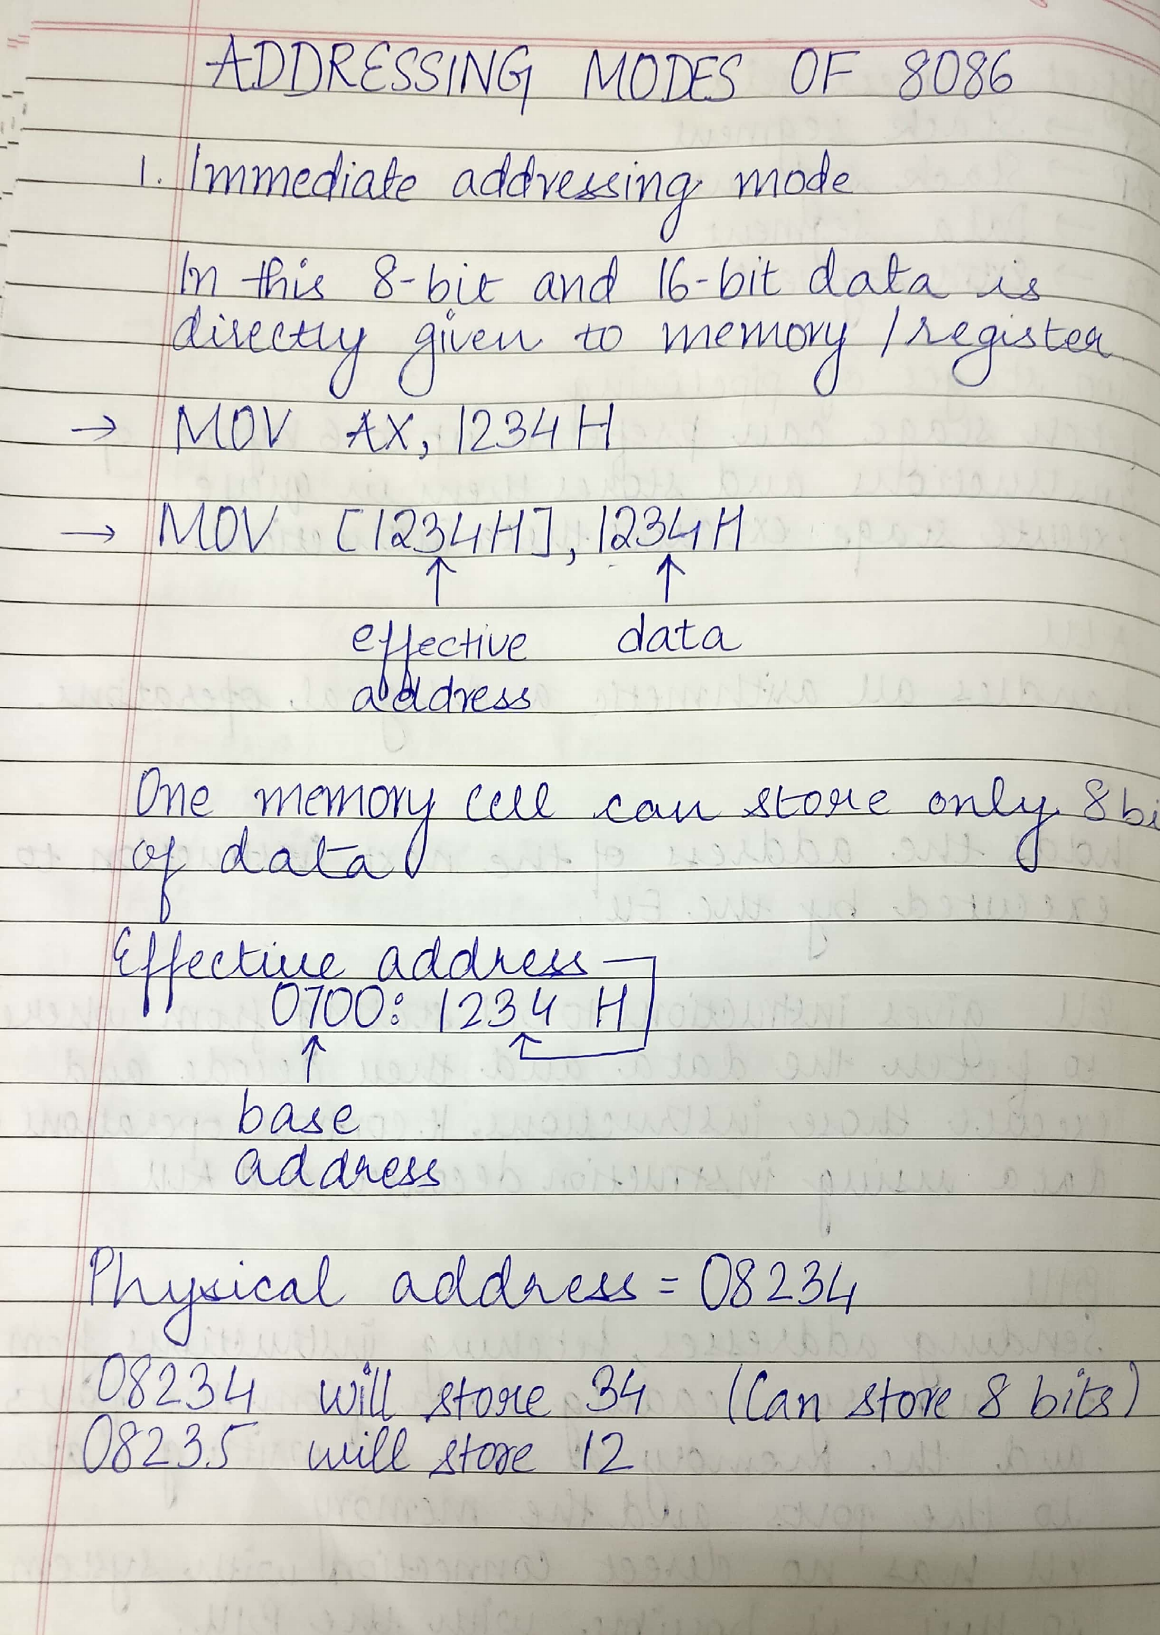 ADDRESSING MODES OF 8086
1. Immediate addressing mode
In this 8-bit and 16-bit data is
directly given to memory / register
→ MOV AX, 1234 H
→ MOV [1234H], 1234H
↑ ↑
effective data
address
One memory cell can store only 8 bi
of data
Effective address
0700: 1234 H
↑
base
address
Physical address = 08234
08234 will store 34 (Can store 8 bits)
08235 will store 12